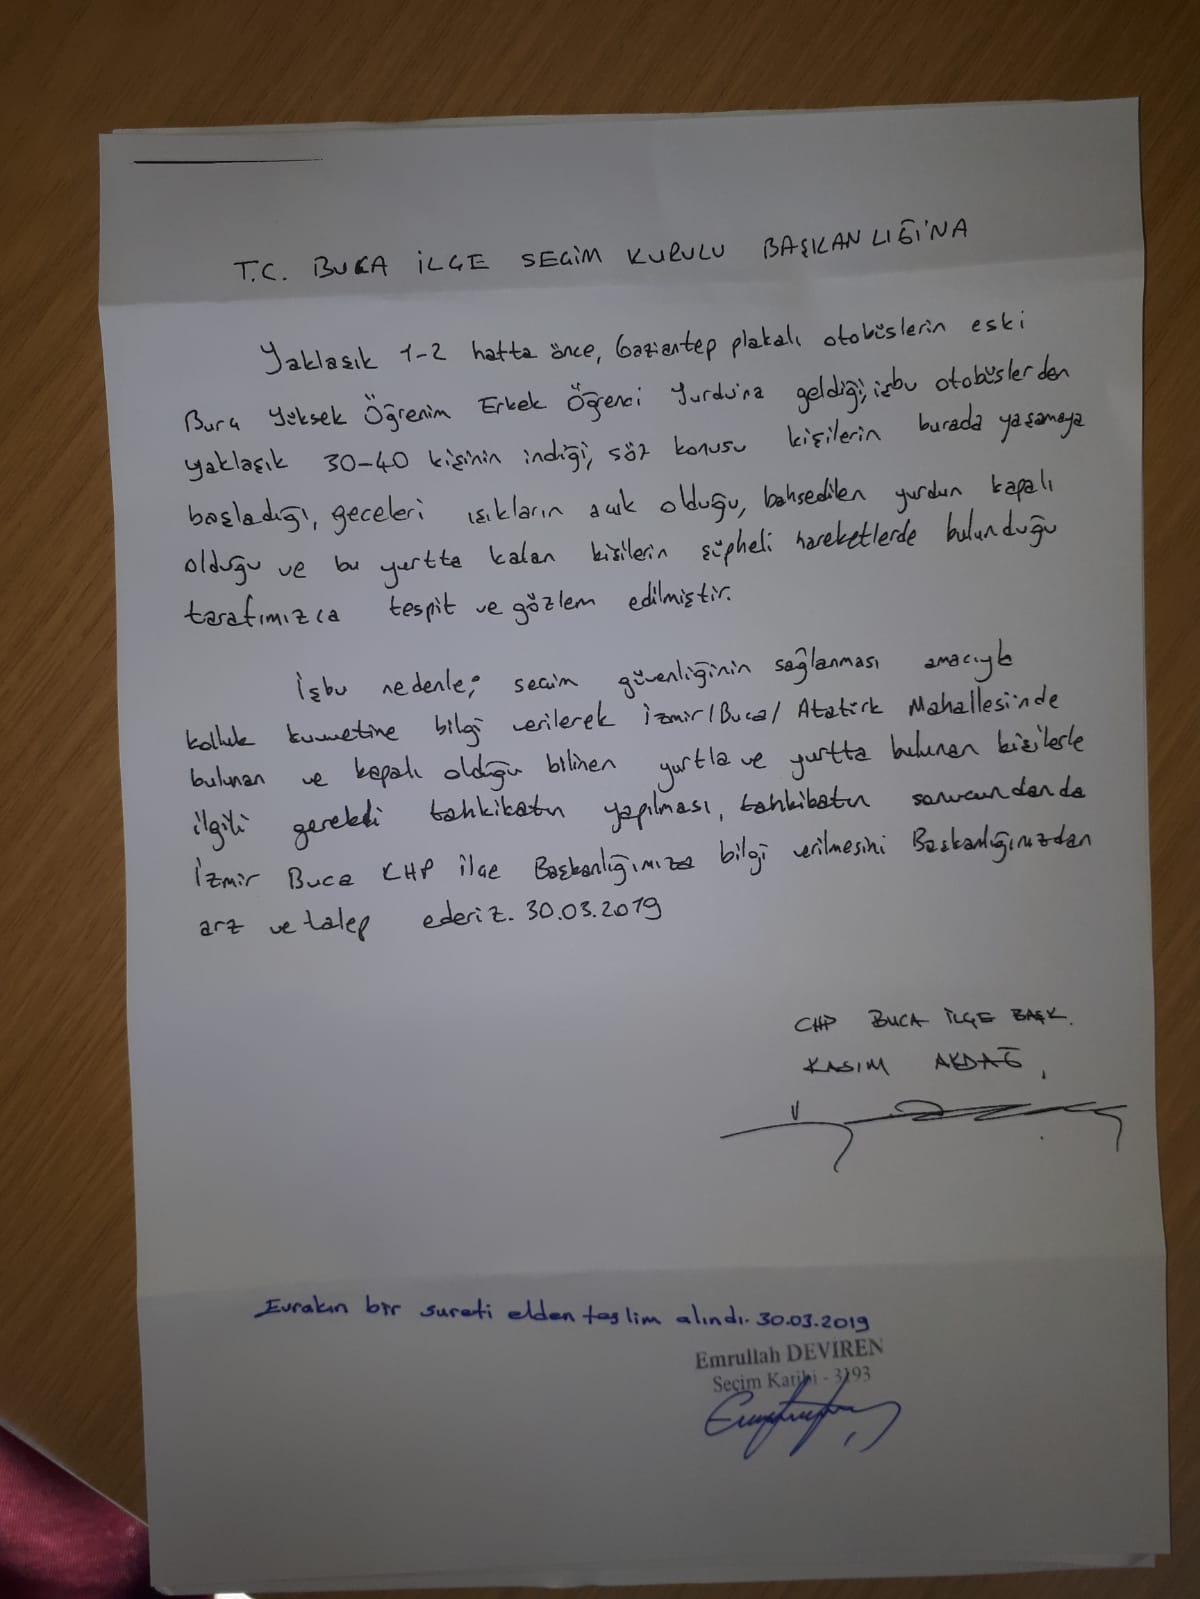 T.C. BUCA İLÇE SEÇİM KURULU BAŞKANLIĞI'NA
Yaklaşık 1-2 hafta önce, Gaziantep plakalı otobüslerin eski
Buca Yüksek Öğrenim Erkek Öğrenci Yurdu'na geldiği, işbu otobüslerden
yaklaşık 30-40 kişinin indiği, söz konusu kişilerin burada yaşamaya
başladığı, geceleri ışıkların açık olduğu, bahsedilen yurdun kapalı
olduğu ve bu yurtta kalan kişilerin şüpheli hareketlerde bulunduğu
tarafımızca tespit ve gözlem edilmiştir.
İşbu nedenle; seçim güvenliğinin sağlanması amacıyla
kolluk kuvvetine bilgi verilerek İzmir/Buca/ Atatürk Mahallesi'nde
bulunan ve kapalı olduğu bilinen yurtla ve yurtta bulunan kişilerle
ilgili gerekli tahkikatın yapılması, tahkikatın sonucundan da
İzmir Buca CHP ilçe Başkanlığımıza bilgi verilmesini Başkanlığınızdan
arz ve talep ederiz. 30.03.2019
CHP BUCA İLÇE BAŞK.
KASIM AKDAĞ
Evrakın bir sureti elden teslim alındı. 30.03.2019
Emrullah DEVİREN
Seçim Katibi - 3193